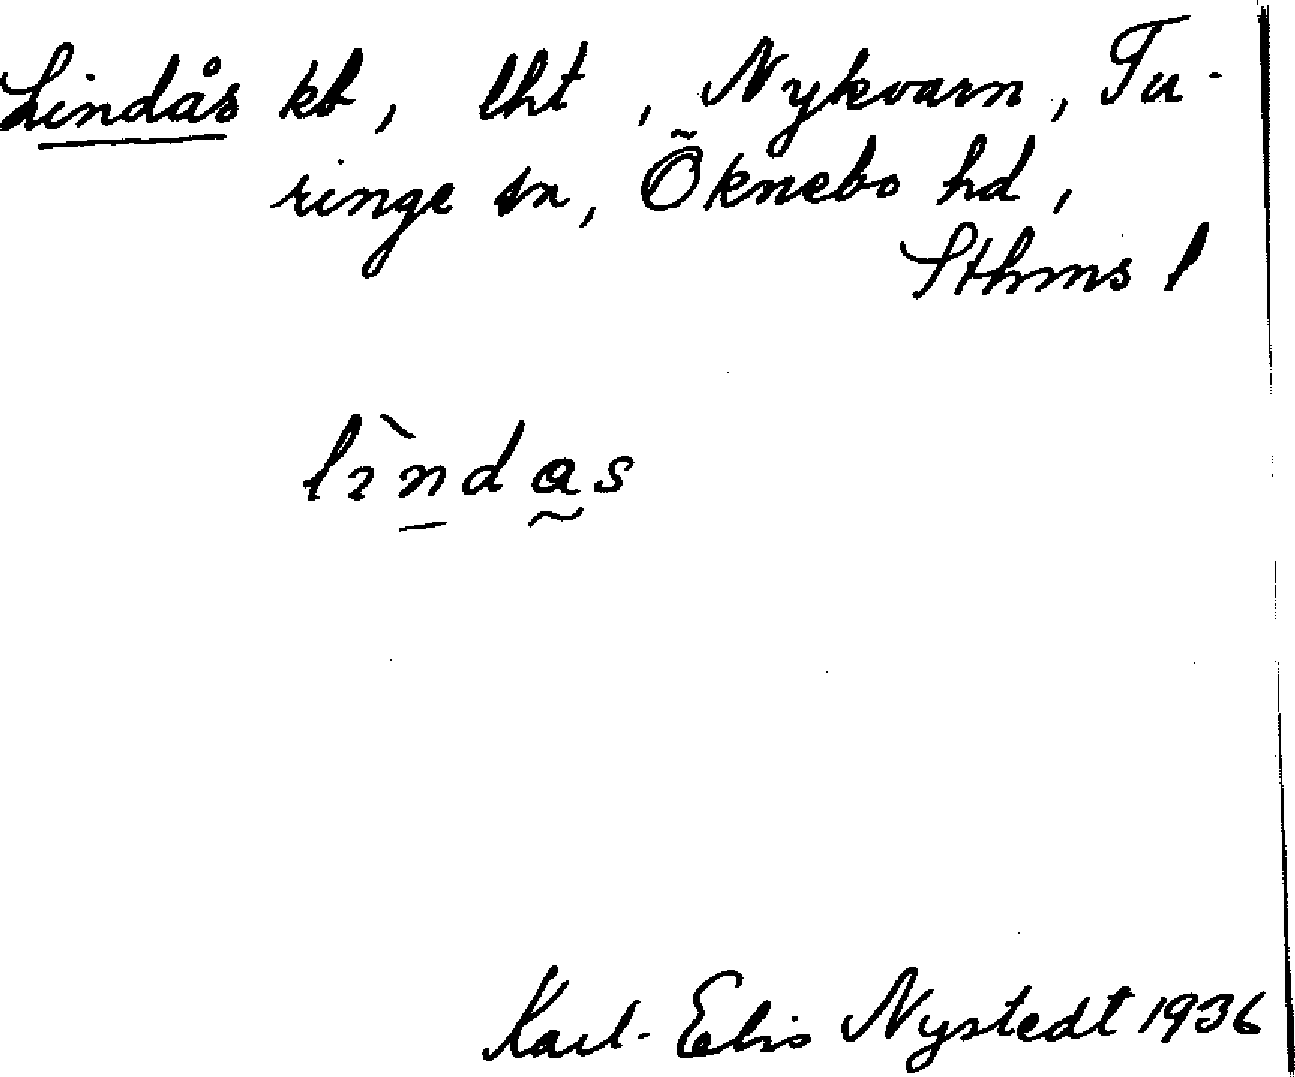 Lindås kt, lht, Nykvarn, Tu-
ringe sn, Öknebo hd,
Sthms l
lìndas
Karl-Elis Nystedt 1936